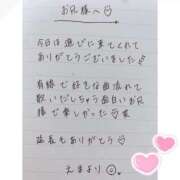 お兄様へ♡
今日は遊びに来てくれて
ありがとうございました
有線で好きな曲流れて
歌いだしちゃう面白いお兄
様で楽しかった♡
延長もありがとう♡
えまより☺